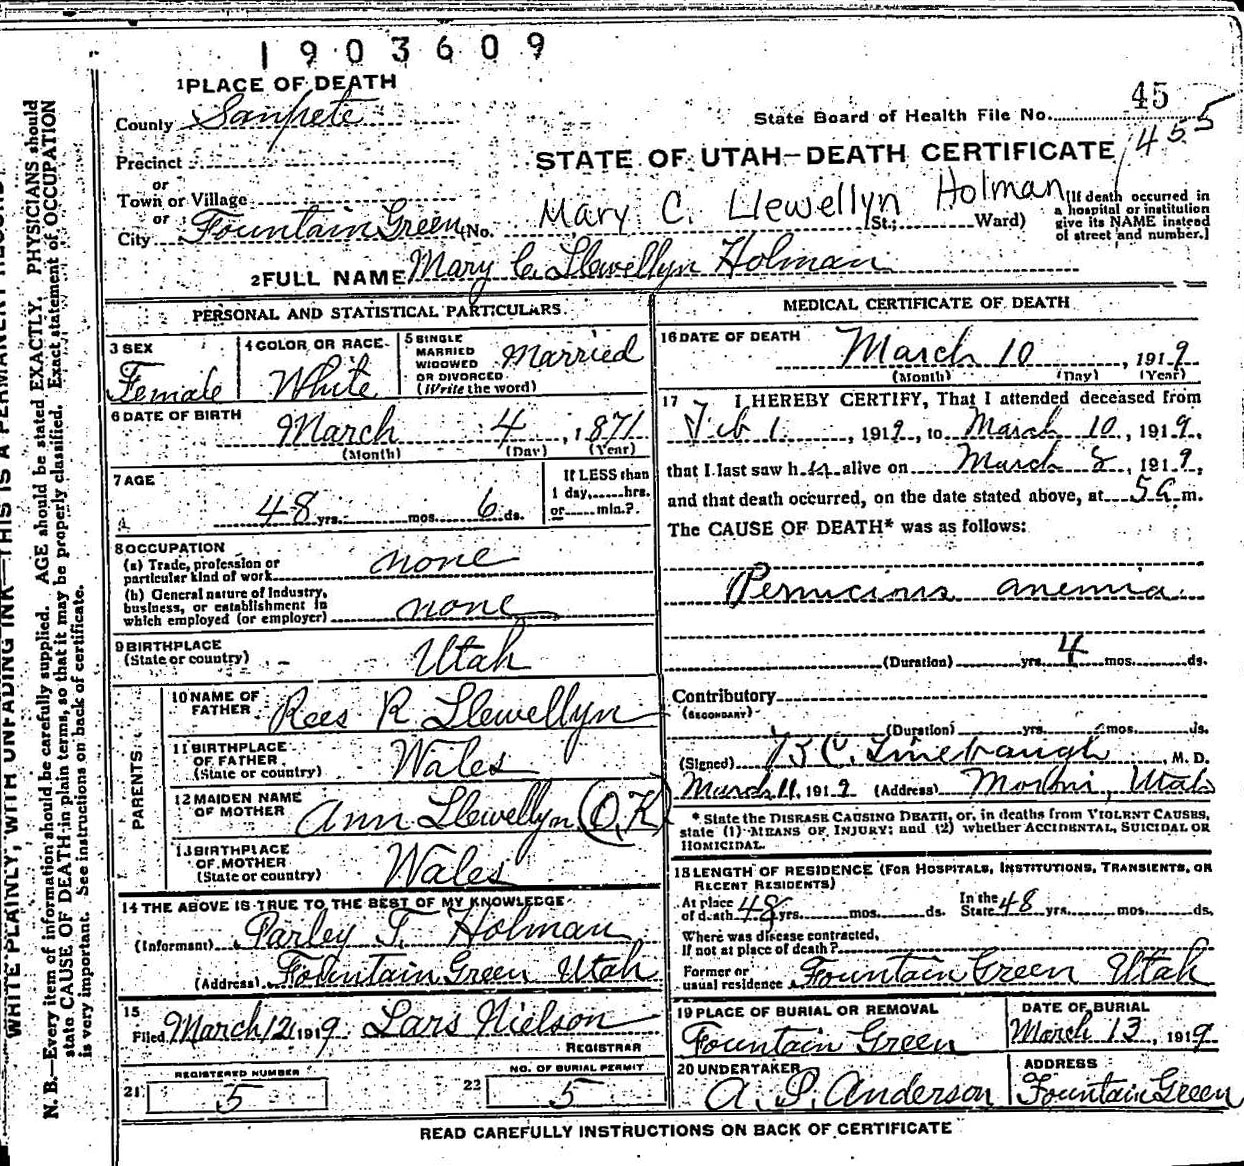 1903609
1 PLACE OF DEATH
County Sanpete
State Board of Health File No. 45
455
Precinct
STATE OF UTAH—DEATH CERTIFICATE
or
Town or Village
or
City Fountain Green (No. Mary C. Llewellyn Holman St.; Ward)
[If death occurred in
a hospital or institution
give its NAME instead
of street and number.]
2 FULL NAME Mary C. Llewellyn Holman
PERSONAL AND STATISTICAL PARTICULARS.
3 SEX
Female
4 COLOR OR RACE
White
5 SINGLE
MARRIED
WIDOWED
OR DIVORCED
(Write the word)
Married
6 DATE OF BIRTH
March 4, 1871
(Month) (Day) (Year)
7 AGE
48 yrs. mos. 6 ds.
If LESS than
1 day, hrs.
or min.?
8 OCCUPATION
(a) Trade, profession or
particular kind of work none
(b) General nature of Industry,
business, or establishment in
which employed (or employer) none
9 BIRTHPLACE
(State or country) Utah
PARENTS
10 NAME OF
FATHER Rees R Llewellyn
11 BIRTHPLACE
OF FATHER
(State or country) Wales
12 MAIDEN NAME
OF MOTHER Ann Llewellyn (O.K)
13 BIRTHPLACE
OF MOTHER
(State or country) Wales
14 THE ABOVE IS TRUE TO THE BEST OF MY KNOWLEDGE
(Informant) Parley T. Holman
(Address) Fountain Green Utah
15
Filed March 12 1919 Lars Nielson
REGISTRAR
REGISTERED NUMBER
21 5
NO. OF BURIAL PERMIT
22 5
MEDICAL CERTIFICATE OF DEATH
16 DATE OF DEATH
March 10, 1919
(Month) (Day) (Year)
17 I HEREBY CERTIFY, That I attended deceased from
Feb 1, 1919, to March 10, 1919,
that I last saw her alive on March 8, 1919,
and that death occurred, on the date stated above, at 5 a m.
The CAUSE OF DEATH* was as follows:
Pernicious anemia
(Duration) yrs. 4 mos. ds.
Contributory
(SECONDARY)
(Duration) yrs. mos. ds.
(Signed) C. Linebaugh, M. D.
March 11, 1919 (Address) Moroni, Utah
* State the DISEASE CAUSING DEATH, or, in deaths from VIOLENT CAUSES,
state (1) MEANS OF INJURY; and (2) whether ACCIDENTAL, SUICIDAL OR
HOMICIDAL.
18 LENGTH OF RESIDENCE (FOR HOSPITALS, INSTITUTIONS, TRANSIENTS, OR
RECENT RESIDENTS)
At place
of death 48 yrs. mos. ds.
In the
State 48 yrs. mos. ds.
Where was disease contracted,
If not at place of death?
Former or
usual residence Fountain Green Utah
19 PLACE OF BURIAL OR REMOVAL
Fountain Green
DATE OF BURIAL
March 13, 1919
20 UNDERTAKER
A. P. Anderson
ADDRESS
Fountain Green
READ CAREFULLY INSTRUCTIONS ON BACK OF CERTIFICATE
WRITE PLAINLY, WITH UNFADING INK—THIS IS A PERMANENT RECORD.
N. B.—Every item of information should be carefully supplied. AGE should be stated EXACTLY. PHYSICIANS should
state CAUSE OF DEATH in plain terms, so that it may be properly classified. Exact statement of OCCUPATION
is very important. See instructions on back of certificate.